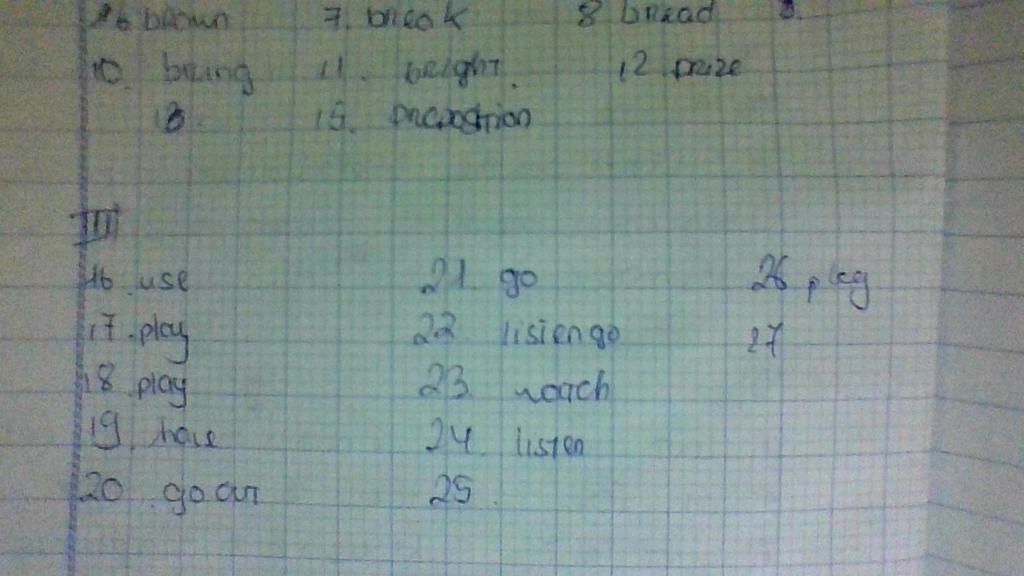 6 brown 7. break 8 bread 9.
10. bring 11. bright. 12 prize
13. 15. preposition
III
16. use 21. go 26 play
17. play 22. listen go 27
18. play 23. watch
19. have 24. listen
20. go 25.